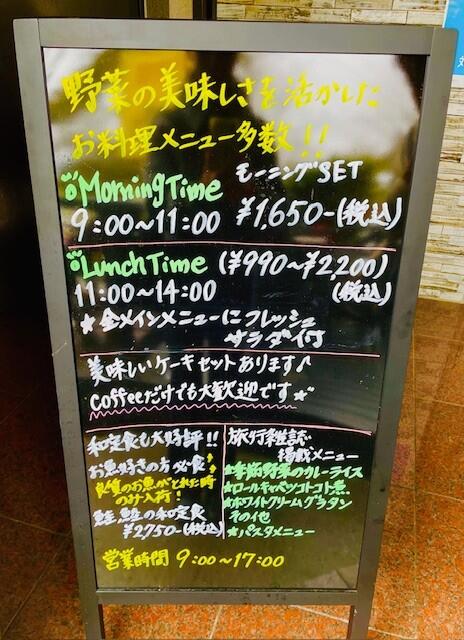 野菜の美味しさを活かした
お料理メニュー多数!!
Morning Time モーニングSET
9:00~11:00 ¥1,650-(税込)
Lunch Time (¥990~¥2,200)
11:00~14:00 (税込)
★全メインメニューにフレッシュ
サラダ付
美味しいケーキセットあります♪
Coffeeだけでも大歓迎です★
和定食も大好評!!
お魚好きの方必食
良質のお魚がとれた時
のみ入荷!
の和定食
¥2750-(税込)
旅行雑誌
掲載メニュー
★季節野菜のカレーライス
★ロールキャベツコトコト煮
★ホワイトクリームグラタン
その他
★パスタメニュー
営業時間 9:00~17:00